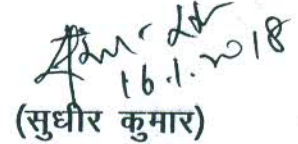 16.1.2018
(सुधीर कुमार)